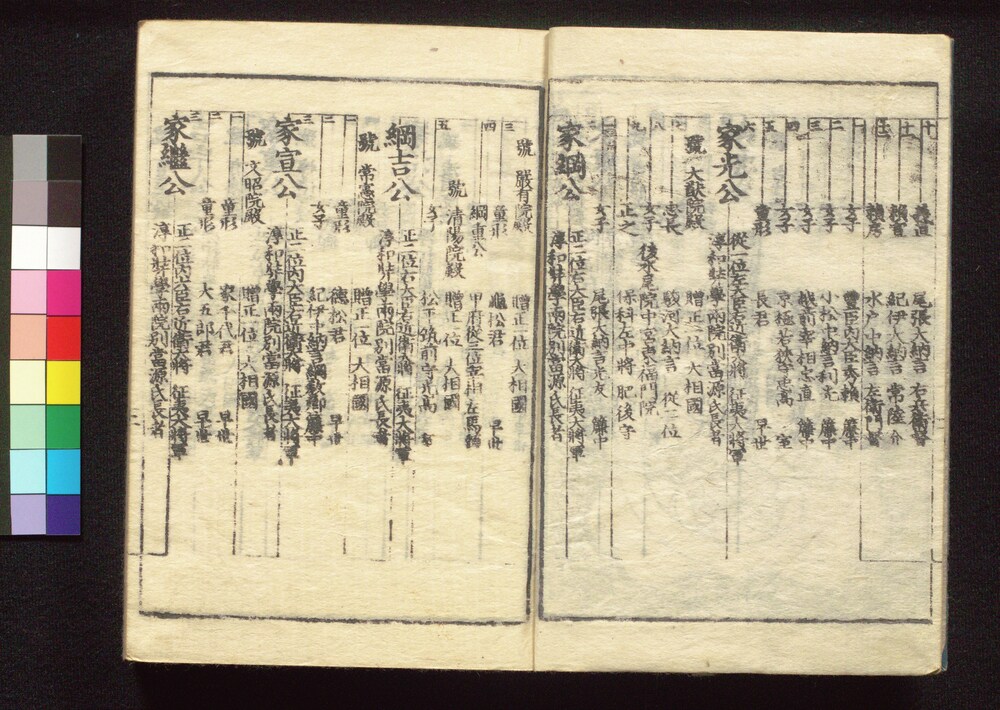 十 義直 尾張大納言 右兵衛督
十一 頼宣 紀伊大納言 常陸介
頼房 水戸中納言 左衛門督
一 女子 豊臣内大臣秀頼 簾中
二 女子 小松中納言利光 簾中
三 女子 越前宰相忠直 簾中
四 女子 京極若狭守忠高 室
五 童形 長君 早世
六 家光公 従一位左大臣右近衛大将 征夷大将軍
淳和奨学両院別当源氏長者
號 大猷院殿 贈正一位 大相國
七 忠長 駿河大納言 従二位
八 女子 後水尾院中宮東福門院
九 正之 保科左中将 肥後守
一 女子 尾張大納言光友 簾中
二 家綱公 正二位右大臣右近衛大将 征夷大将軍
淳和奨学両院別當源氏長者
號 嚴有院殿 贈正一位 大相國
三 童形 亀松君 早世
四 綱重公 甲府従三位宰相左馬頭
號 清陽院殿 贈正一位 大相國
女子 松平筑前守光高 室
五 綱吉公 正二位右大臣右近衛大将 征夷大将軍
淳和奨學両院別當源氏長者
號 常憲院殿 贈正一位 大相國
一 童形 徳松君 早世
二 女子 紀伊中納言綱教卿 簾中
三 家宣公 正二位内大臣右近衛大将 征夷大将軍
淳和奨學両院別當源氏長者
號 文昭院殿 贈正一位 大相國
一 童形 家千代君 早世
二 童形 大五郎君 早世
三 家繼公 正二位内大臣右近衛大将 征夷大将軍
淳和奨學両院別當源氏長者